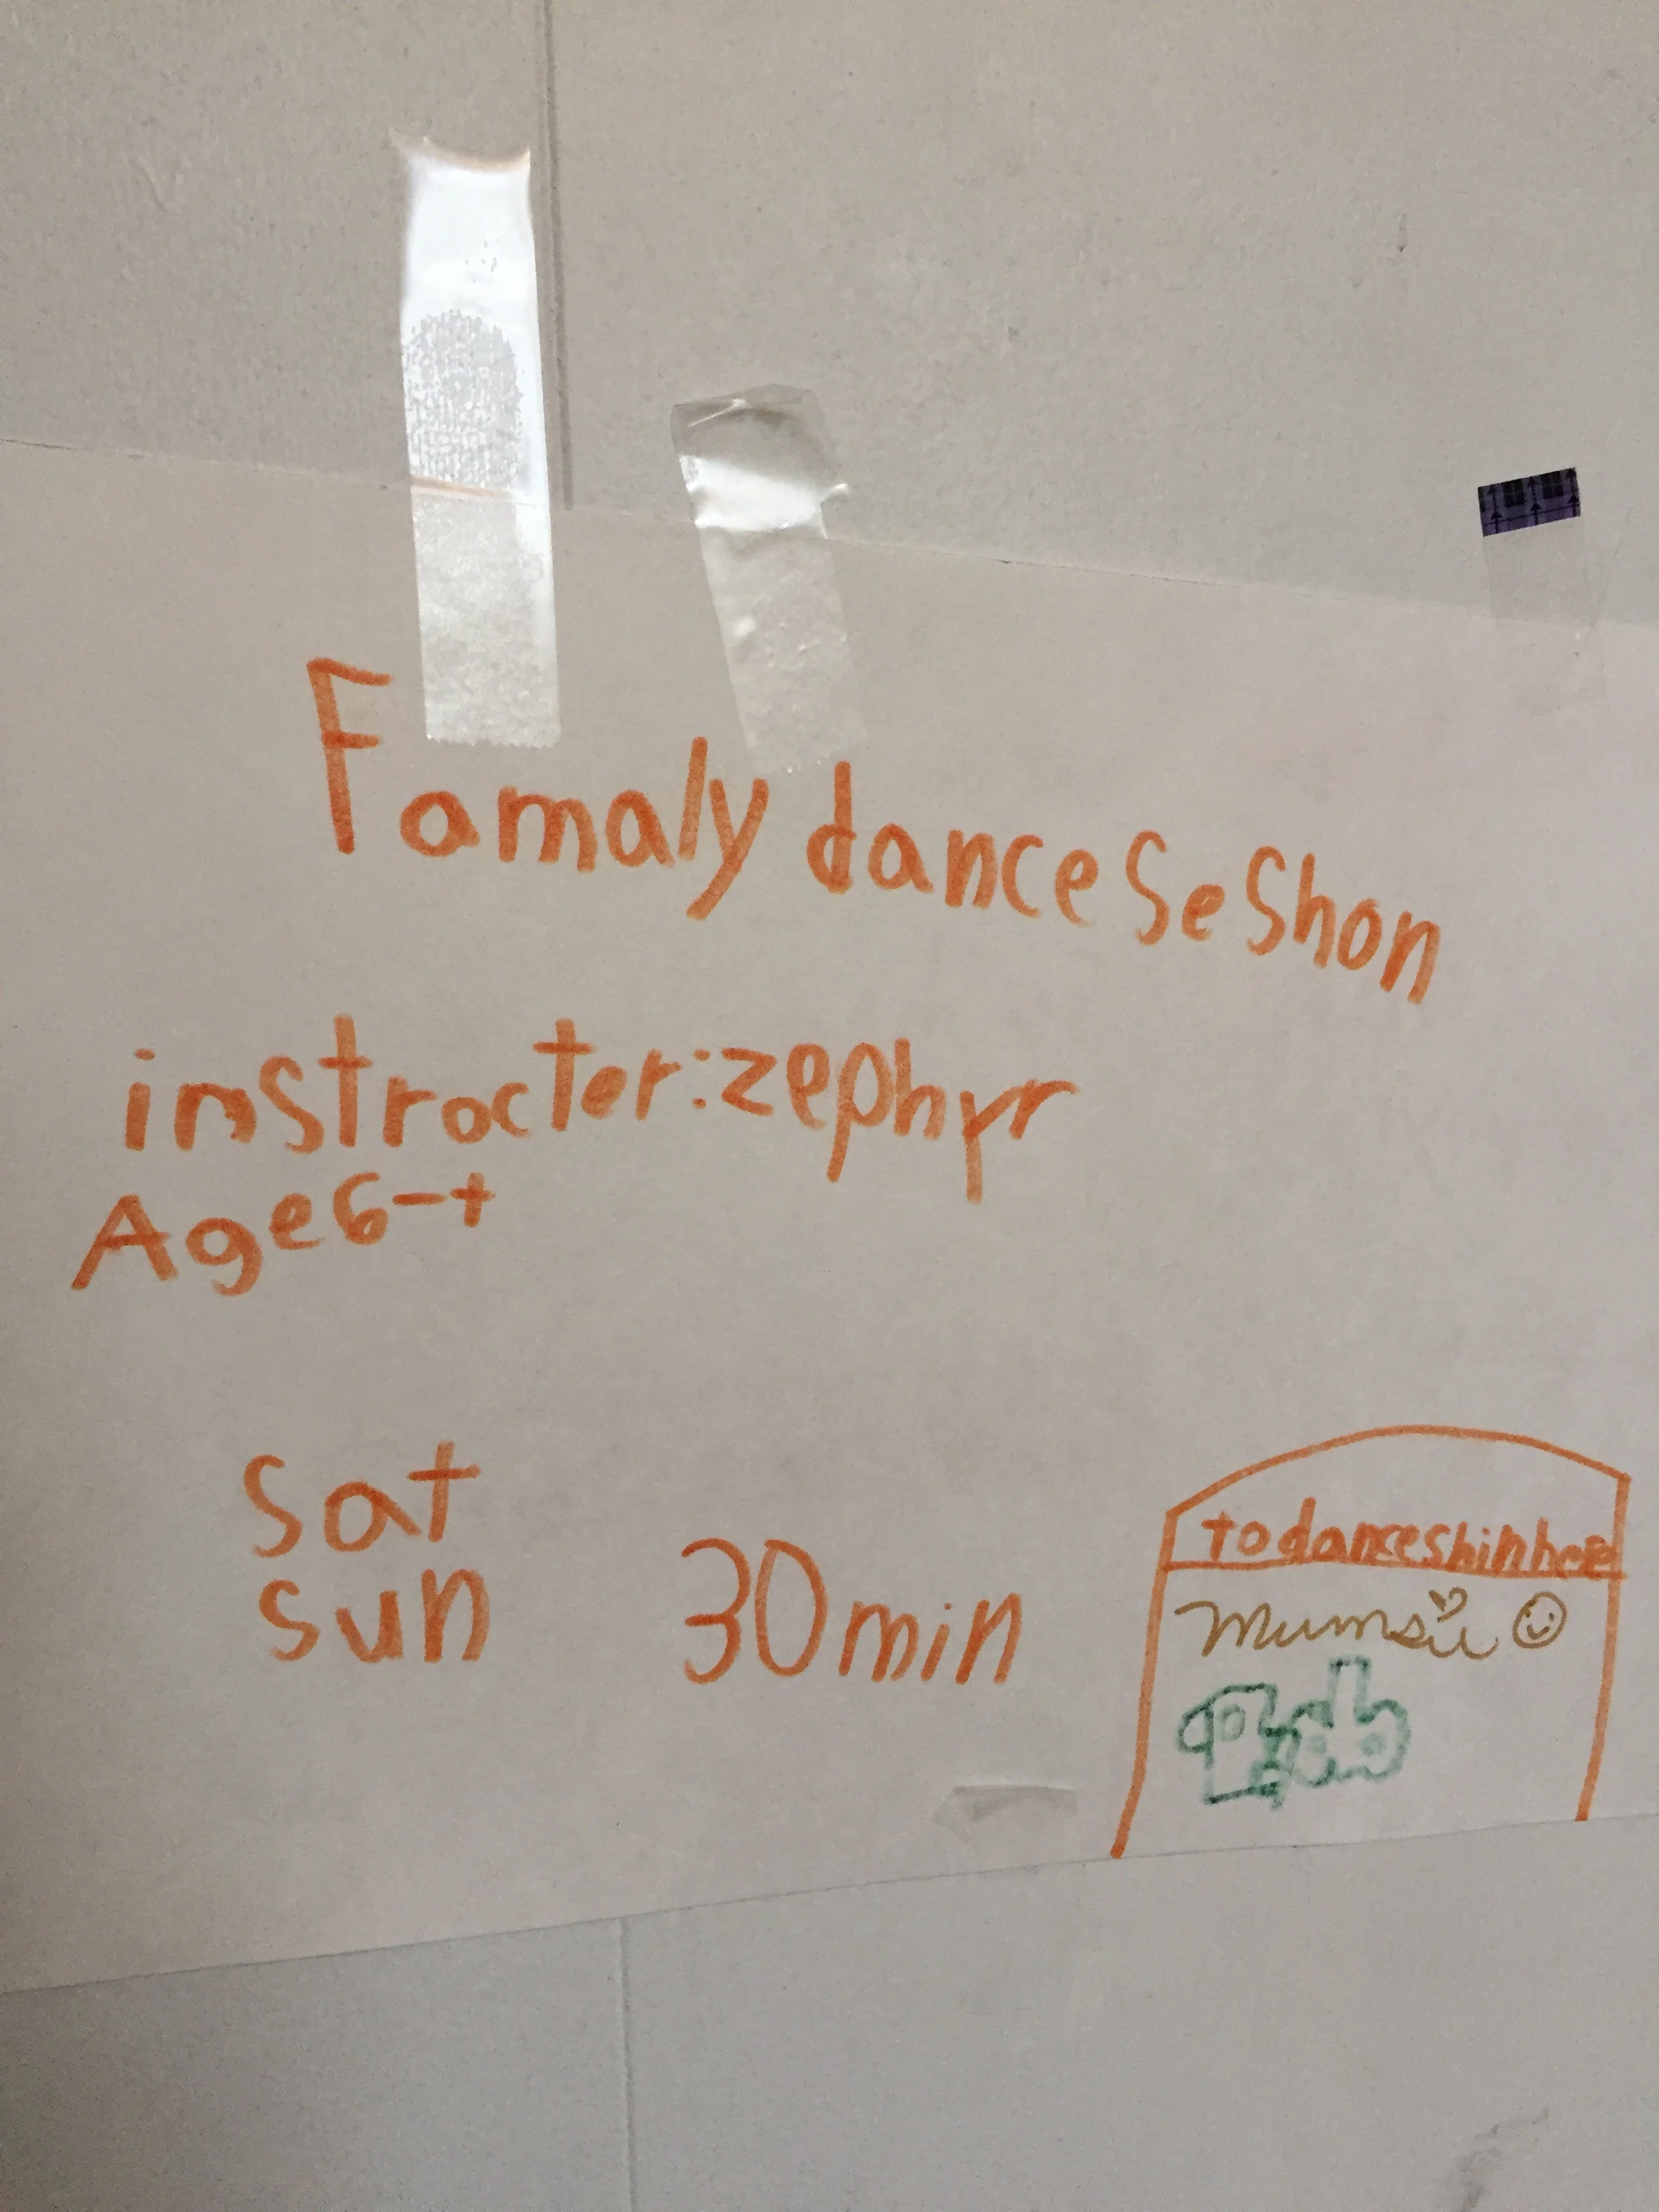 Famaly dance Seshon
instructer:zephyr
Age6-+
Sat
Sun
30min
todanceshinhere
Mumsie